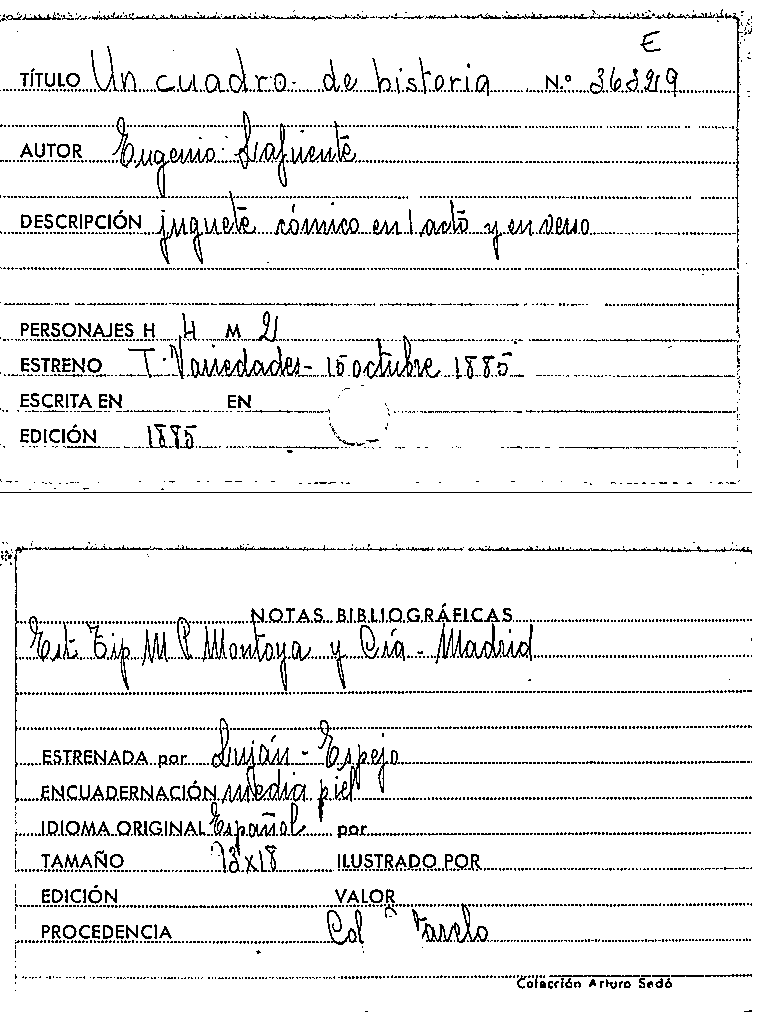 E
TÍTULO Un cuadro de historia N.º
AUTOR Eugenio Lafuente
DESCRIPCIÓN juguete cómico en 1 acto y en verso
PERSONAJES H 4 M 2
ESTRENO T. Variedades - 15 octubre 1885
ESCRITA EN EN
EDICIÓN 1885
NOTAS BIBLIOGRÁFICAS
Est. Tip M P Montoya y Cía - Madrid
ESTRENADA por Luján - Espejo
ENCUADERNACIÓN media piel
IDIOMA ORIGINAL Español por
TAMAÑO 13x18 ILUSTRADO POR
EDICIÓN VALOR
PROCEDENCIA Col
Colección Arturo Sedó